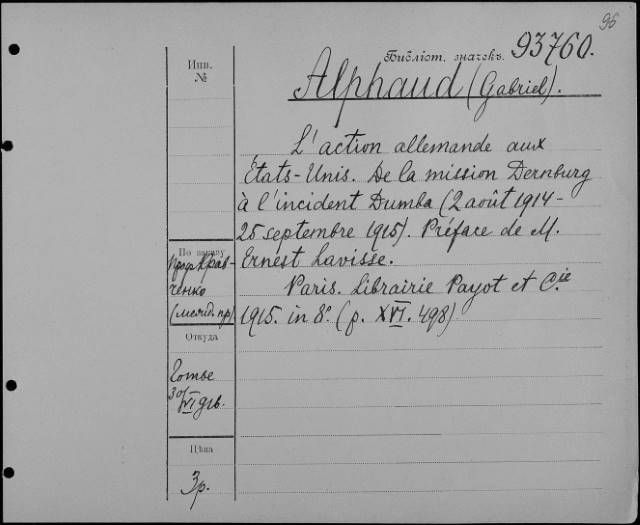 95
Библіот. значекъ. 93760.
Инв.
№
Alphaud (Gabriel).
L'action allemande aux
États-Unis. De la mission Dernburg
à l'incident Dumba (2 août 1914 -
25 septembre 1915). Préface de M.
Ernest Lavisse.
Paris. Librairie Payot et C.ie
1915. in 8º. (p. XVI. 498)
По заказу
проф. Крав-
ченко
(межд. пр.)
Откуда
Готье
30/VI 916.
Цѣна
3р.